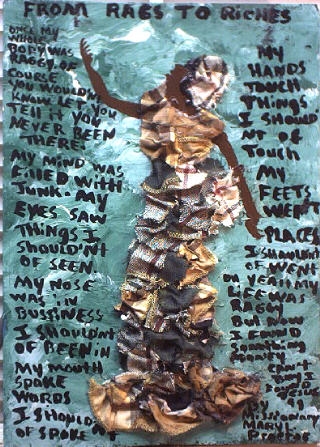 FROM RAGS TO RICHES
ONCE MY
WHOLE
BODY WAS
RAGGY. OF
COURSE
YOU WOULDN'T
KNOW LET YOU
TELL IT YOU
NEVER BEEN
THERE.
MY MIND WAS
FILLED WITH
JUNK. MY
EYES SAW
THINGS I
SHOULDN'T
OF SEEN.
MY NOSE
WAS IN
BUSSINESS
I SHOULDNT
OF BEEN IN
MY MOUTH
SPOKE
WORDS
I SHOULD
OF SPOKE NT
MY
HANDS
TOUCH
THINGS
I SHOULD
NT OF
TOUCH
MY
FEETS
WENT
PLACES
I SHOULDN'T
OF WENT
OH YEAH MY
LIFE WAS
RAGGY
BUT NOW
I FOUND
SOMETHING
MONEY
CAN'T
I FOUND
JESUS
BY
MISSIONARY
MARY L
PROCTOR